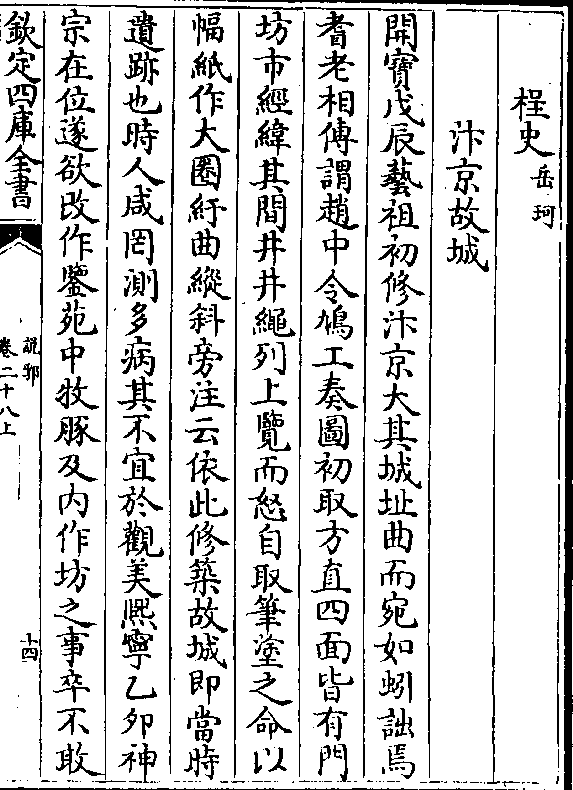 桯史岳珂
汴京故城
開寶戊辰藝祖初修汴京大其城址曲而宛如蚓詘焉
耆老相傳謂趙中令鳩工奏圖初取方直四面皆有門
坊市經緯其間井井繩列上覽而怒自取筆塗之命以
幅紙作大圈紆曲縱斜旁注云依此修築故城即當時
遺跡也時人咸罔測多病其不宜於觀美熈寧乙卯神
宗在位遂欲改作鑒苑中牧豚及内作坊之事卒不敢
欽定四庫全書
說郛
卷二十八上
十四